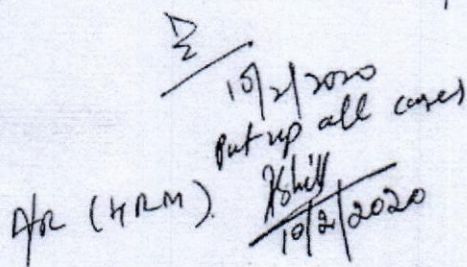 10/2/2020
Put up all cases
A/R (HRM)
10/2/2020